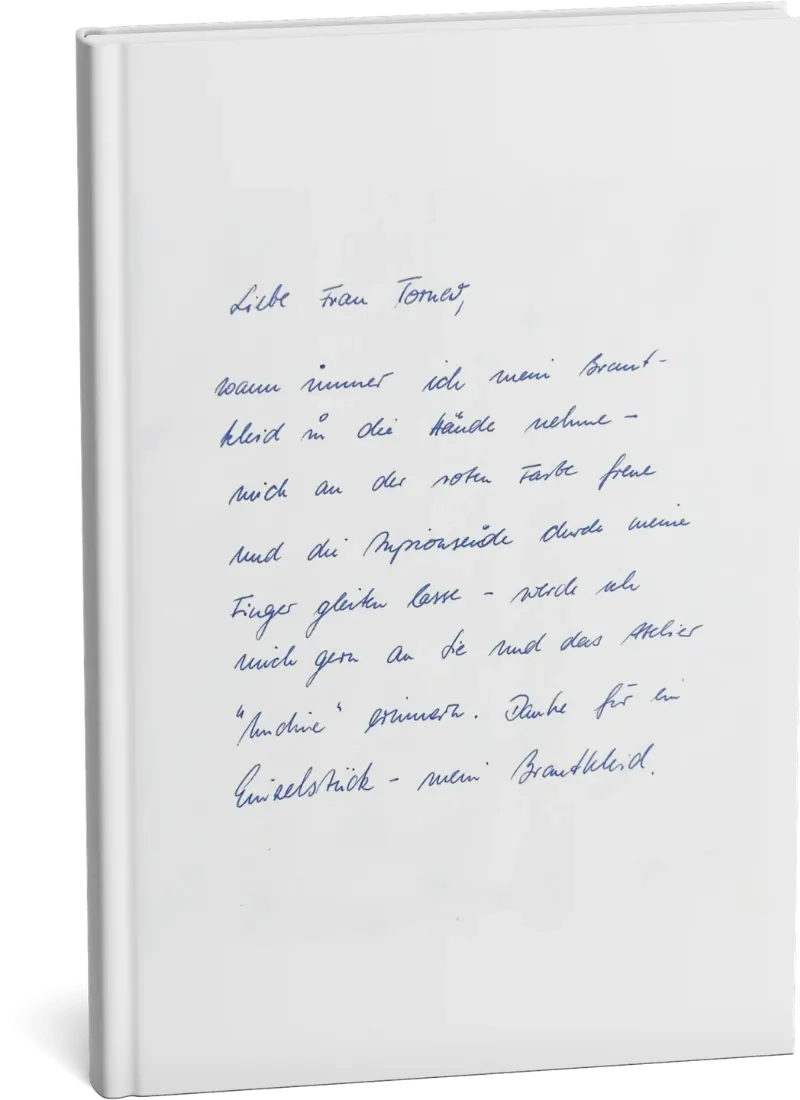 Liebe Frau Torner,
wann immer ich mein Braut-
kleid in die Hände nehme -
mich an der roten Farbe freue
und die Dupionseide durch meine
Finger gleiten lasse - werde ich
mich gern an Sie und das Atelier
"Undine" erinnern. Danke für ein
Einzelstück - mein Brautkleid.